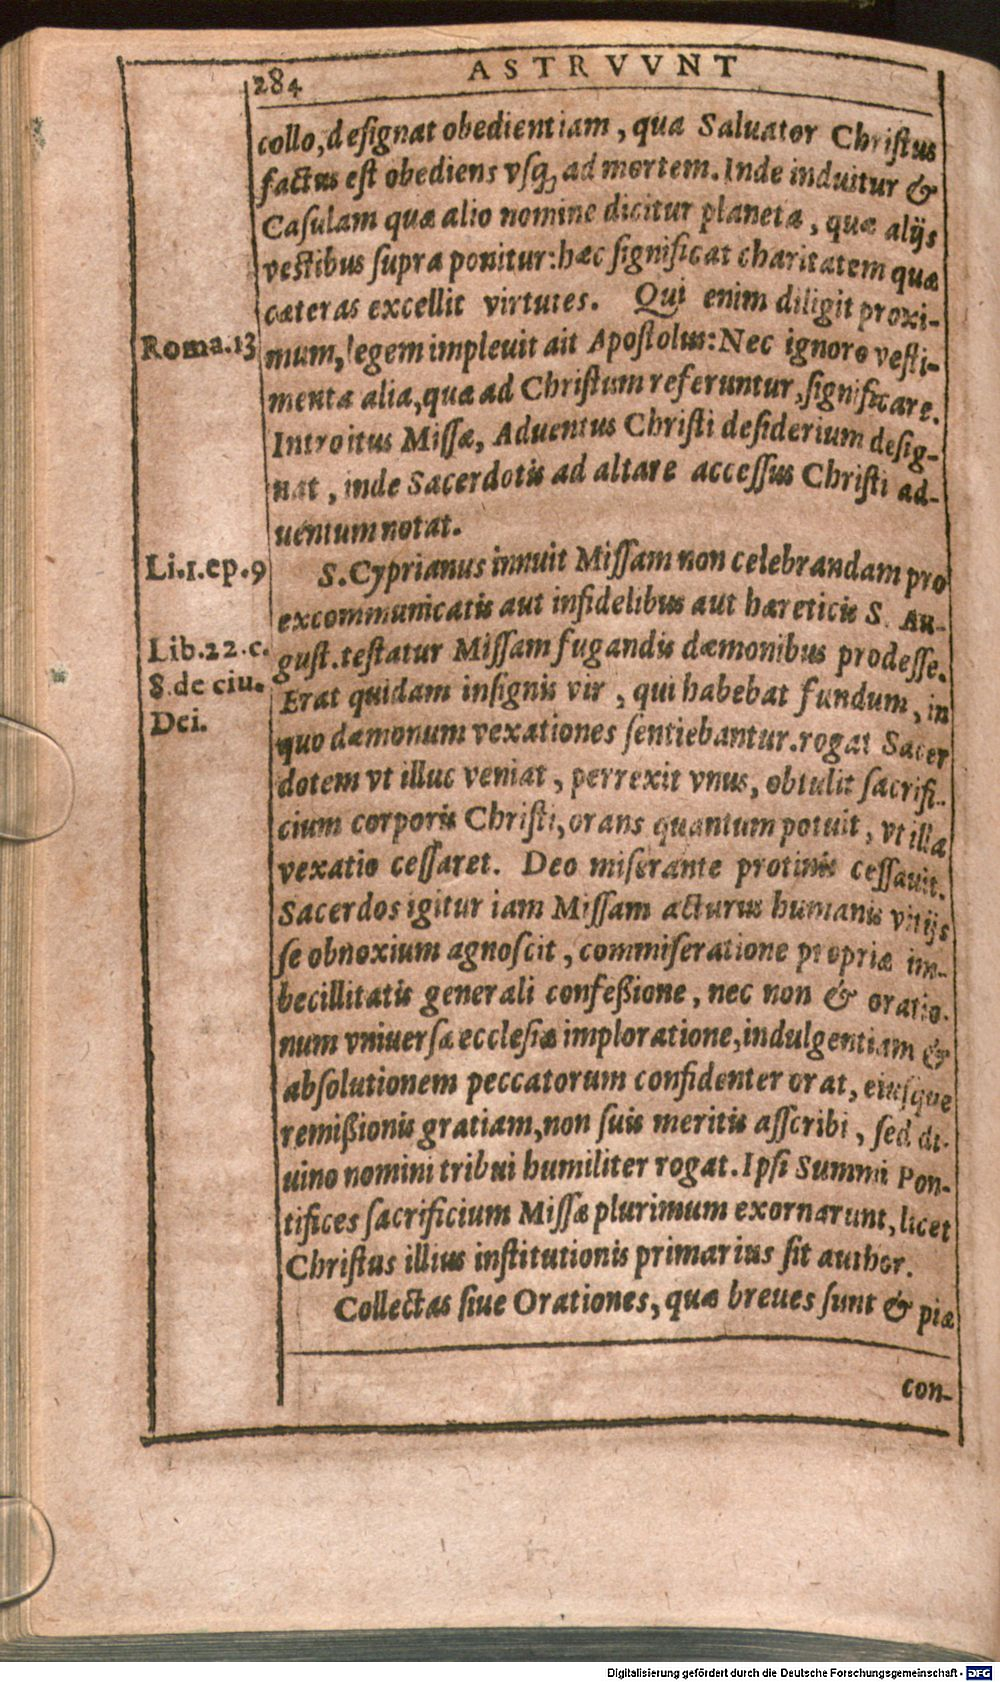 284 ASTRVVNT
collo, designat obedientiam, qua Saluator Christus
factus est obediens vsq; ad mortem. Inde induitur &
Casulam quæ alio nomine dicitur planeta, quæ alijs
vestibus supra ponitur: hæc significat charitatem quæ
cæteras excellit virtutes. Qui enim diligit proxi-
Roma.13
mum, legem impleuit ait Apostolus: Nec ignoro vesti-
menta alia, quæ ad Christum referuntur, significare.
Introitus Missæ, Aduentus Christi desiderium desig-
nat, inde Sacerdotis ad altare accessus Christi ad-
uentum notat.
Li.1.ep.9
S. Cyprianus innuit Missam non celebrandam pro
excommunicatis aut infidelibus aut hæreticis S. Au-
Lib.22.c.
gust. testatur Missam fugandis dæmonibus prodesse.
8.de ciu.
Erat quidam insignis vir, qui habebat fundum, in
Dei.
quo dæmonum vexationes sentiebantur. rogat Sacer
dotem vt illuc veniat, perrexit vnus, obtulit sacrifi-
cium corporis Christi, orans quantum potuit, vt illa
vexatio cessaret. Deo miserante protinus cessauit.
Sacerdos igitur iam Missam acturus humanis vitijs
se obnoxium agnoscit, commiseratione propriæ im-
becillitatis generali confeßione, nec non & oratio-
num vniuersæ ecclesiæ imploratione, indulgentiam &
absolutionem peccatorum confidenter orat, eiusque
remißionis gratiam, non suis meritis asscribi, sed di-
uino nomini tribui humiliter rogat. Ipsi Summi Pon-
tifices sacrificium Missæ plurimum exornarunt, licet
Christus illius institutionis primarius sit author.
Collectas siue Orationes, quæ breues sunt & piæ
con-
Digitalisierung gefördert durch die Deutsche Forschungsgemeinschaft - DFG